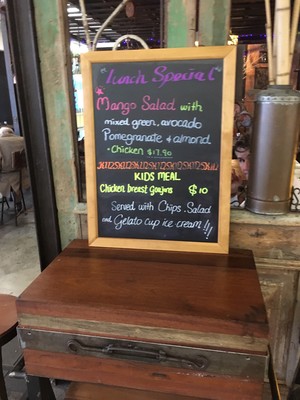 "Lunch Special"
Mango Salad with
mixed green, avocado
Pomegranate & almond
• Chicken $17.90
KIDS MEAL
Chicken breast goujns $10
Served with Chips. Salad
and Gelato cup ice cream!!!